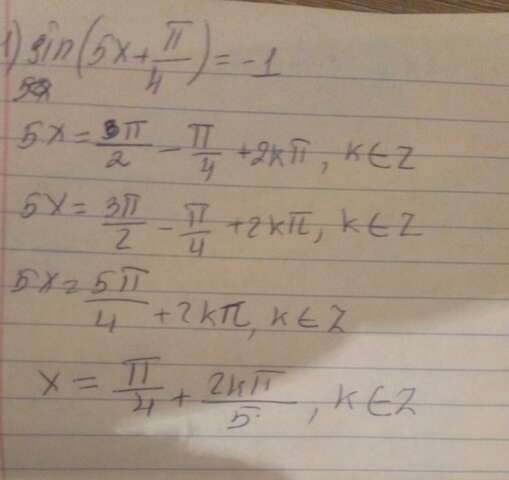 1) sin(5x+π/4)=-1
5x=3π/2-π/4+2kπ, k∈Z
5x=3π/2-π/4+2kπ, k∈Z
5x=5π/4+2kπ, k∈Z
x=π/4+2kπ/5, k∈Z